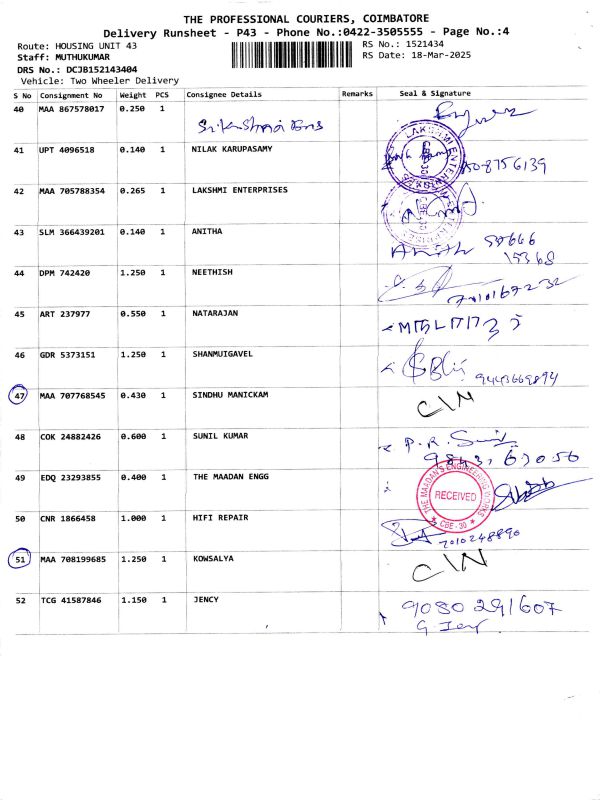 THE PROFESSIONAL COURIERS, COIMBATORE
Delivery Runsheet - P43 - Phone No.:0422-3505555 - Page No.:4
Route: HOUSING UNIT 43
RS No.: 1521434
Staff: MUTHUKUMAR
RS Date: 18-Mar-2025
DRS No.: DCJB152143404
Vehicle: Two Wheeler Delivery
S No Consignment No Weight PCS Consignee Details Remarks Seal & Signature
40 MAA 867578017 0.250 1
41 UPT 4096518 0.140 1 NILAK KARUPASAMY
LAKSHMI ENTERPRISES CBE-30
42 MAA 705788354 0.265 1 LAKSHMI ENTERPRISES
CBE-30
43 SLM 366439201 0.140 1 ANITHA Anitha
44 DPM 742420 1.250 1 NEETHISH
45 ART 237977 0.550 1 NATARAJAN
46 GDR 5373151 1.250 1 SHANMUIGAVEL
9443669894
47 MAA 707768545 0.430 1 SINDHU MANICKAM C\N
48 COK 24882426 0.600 1 SUNIL KUMAR P.R.
49 EDQ 23293855 0.400 1 THE MAADAN ENGG
THE MAADAN'S ENGINEERING WORKS RECEIVED CBE-30
50 CNR 1866458 1.000 1 HIFI REPAIR
7010248890
51 MAA 708199685 1.250 1 KOWSALYA C\N
52 TCG 41587846 1.150 1 JENCY 9080291607